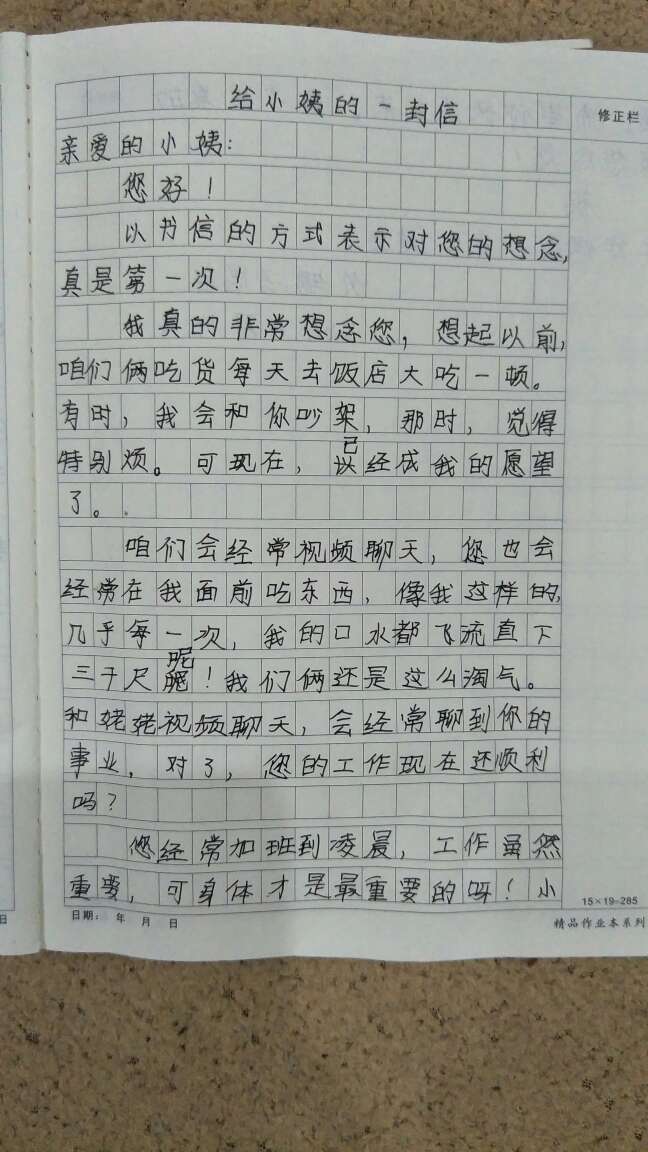 给小姨的一封信
修正栏
亲爱的小姨：
您好！
以书信的方式表示对您的想念，
真是第一次！
我真的非常想念您，想起以前，
咱们俩吃货每天去饭店大吃一顿。
有时，我会和你吵架，那时，觉得
特别烦。可现在，已经成我的愿望
了。
咱们会经常视频聊天，您也会
经常在我面前吃东西，像我这样的，
几乎每一次，我的口水都飞流直下
三千尺呢！我们俩还是这么淘气。
和姥姥视频聊天，会经常聊到你的
事业，对了，您的工作现在还顺利
吗？
您经常加班到凌晨，工作虽然
重要，可身体才是最重要的呀！小
15×19=285
日期： 年 月 日
精品作业本系列
日